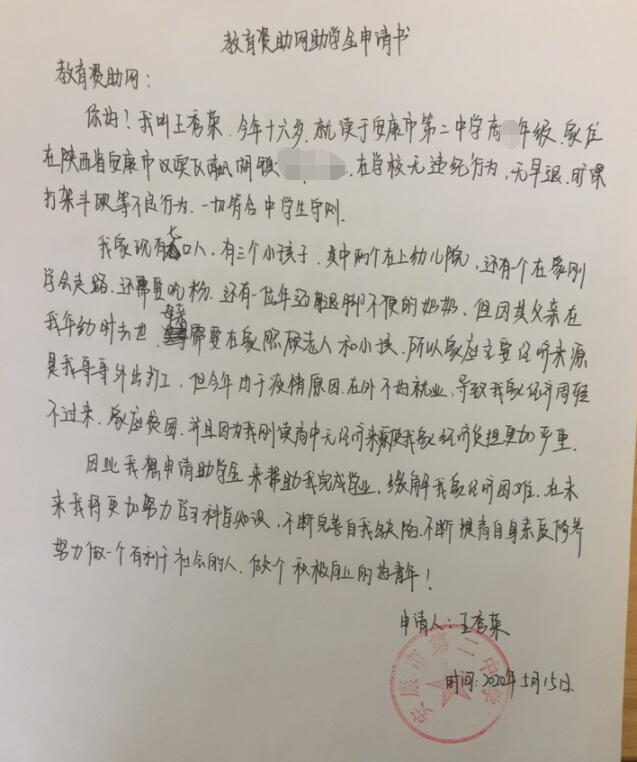 教育资助网助学金申请书
教育资助网：
你好！我叫王秀荣．今年十六岁．就读于安康市第二中学高 年级．家住
在陕西省安康市汉滨区 关镇 ．在学校无违纪行为，无早退．旷课
打架斗殴等不良行为．一切符合中学生守则．
我家现有七口人，有三个小孩子．其中两个在上幼儿院，还有一个在家刚
学会走路．还需要吃粉．还有一位年迈腿脚不便的奶奶．但因其父亲在
我年幼时去世．母亲需要在家照顾老人和小孩．所以家庭主要经济来源
是我哥哥外出打工，但今年由于疫情原因．在外不好就业，导致我家经济周转
不过来．家庭贫困．并且因为我刚读高中无经济来源使我家经济负担更加严重．
因此我想申请助学金来帮助我完成学业，缓解我家经济困难．在未
来我将更加努力学习科学知识，不断完善自我缺陷．不断提高自身素质修养
努力做一个有利于社会的人．做个积极向上的好青年！
申请人：王秀荣
时间：2020年5月15日．
安康市第二中学